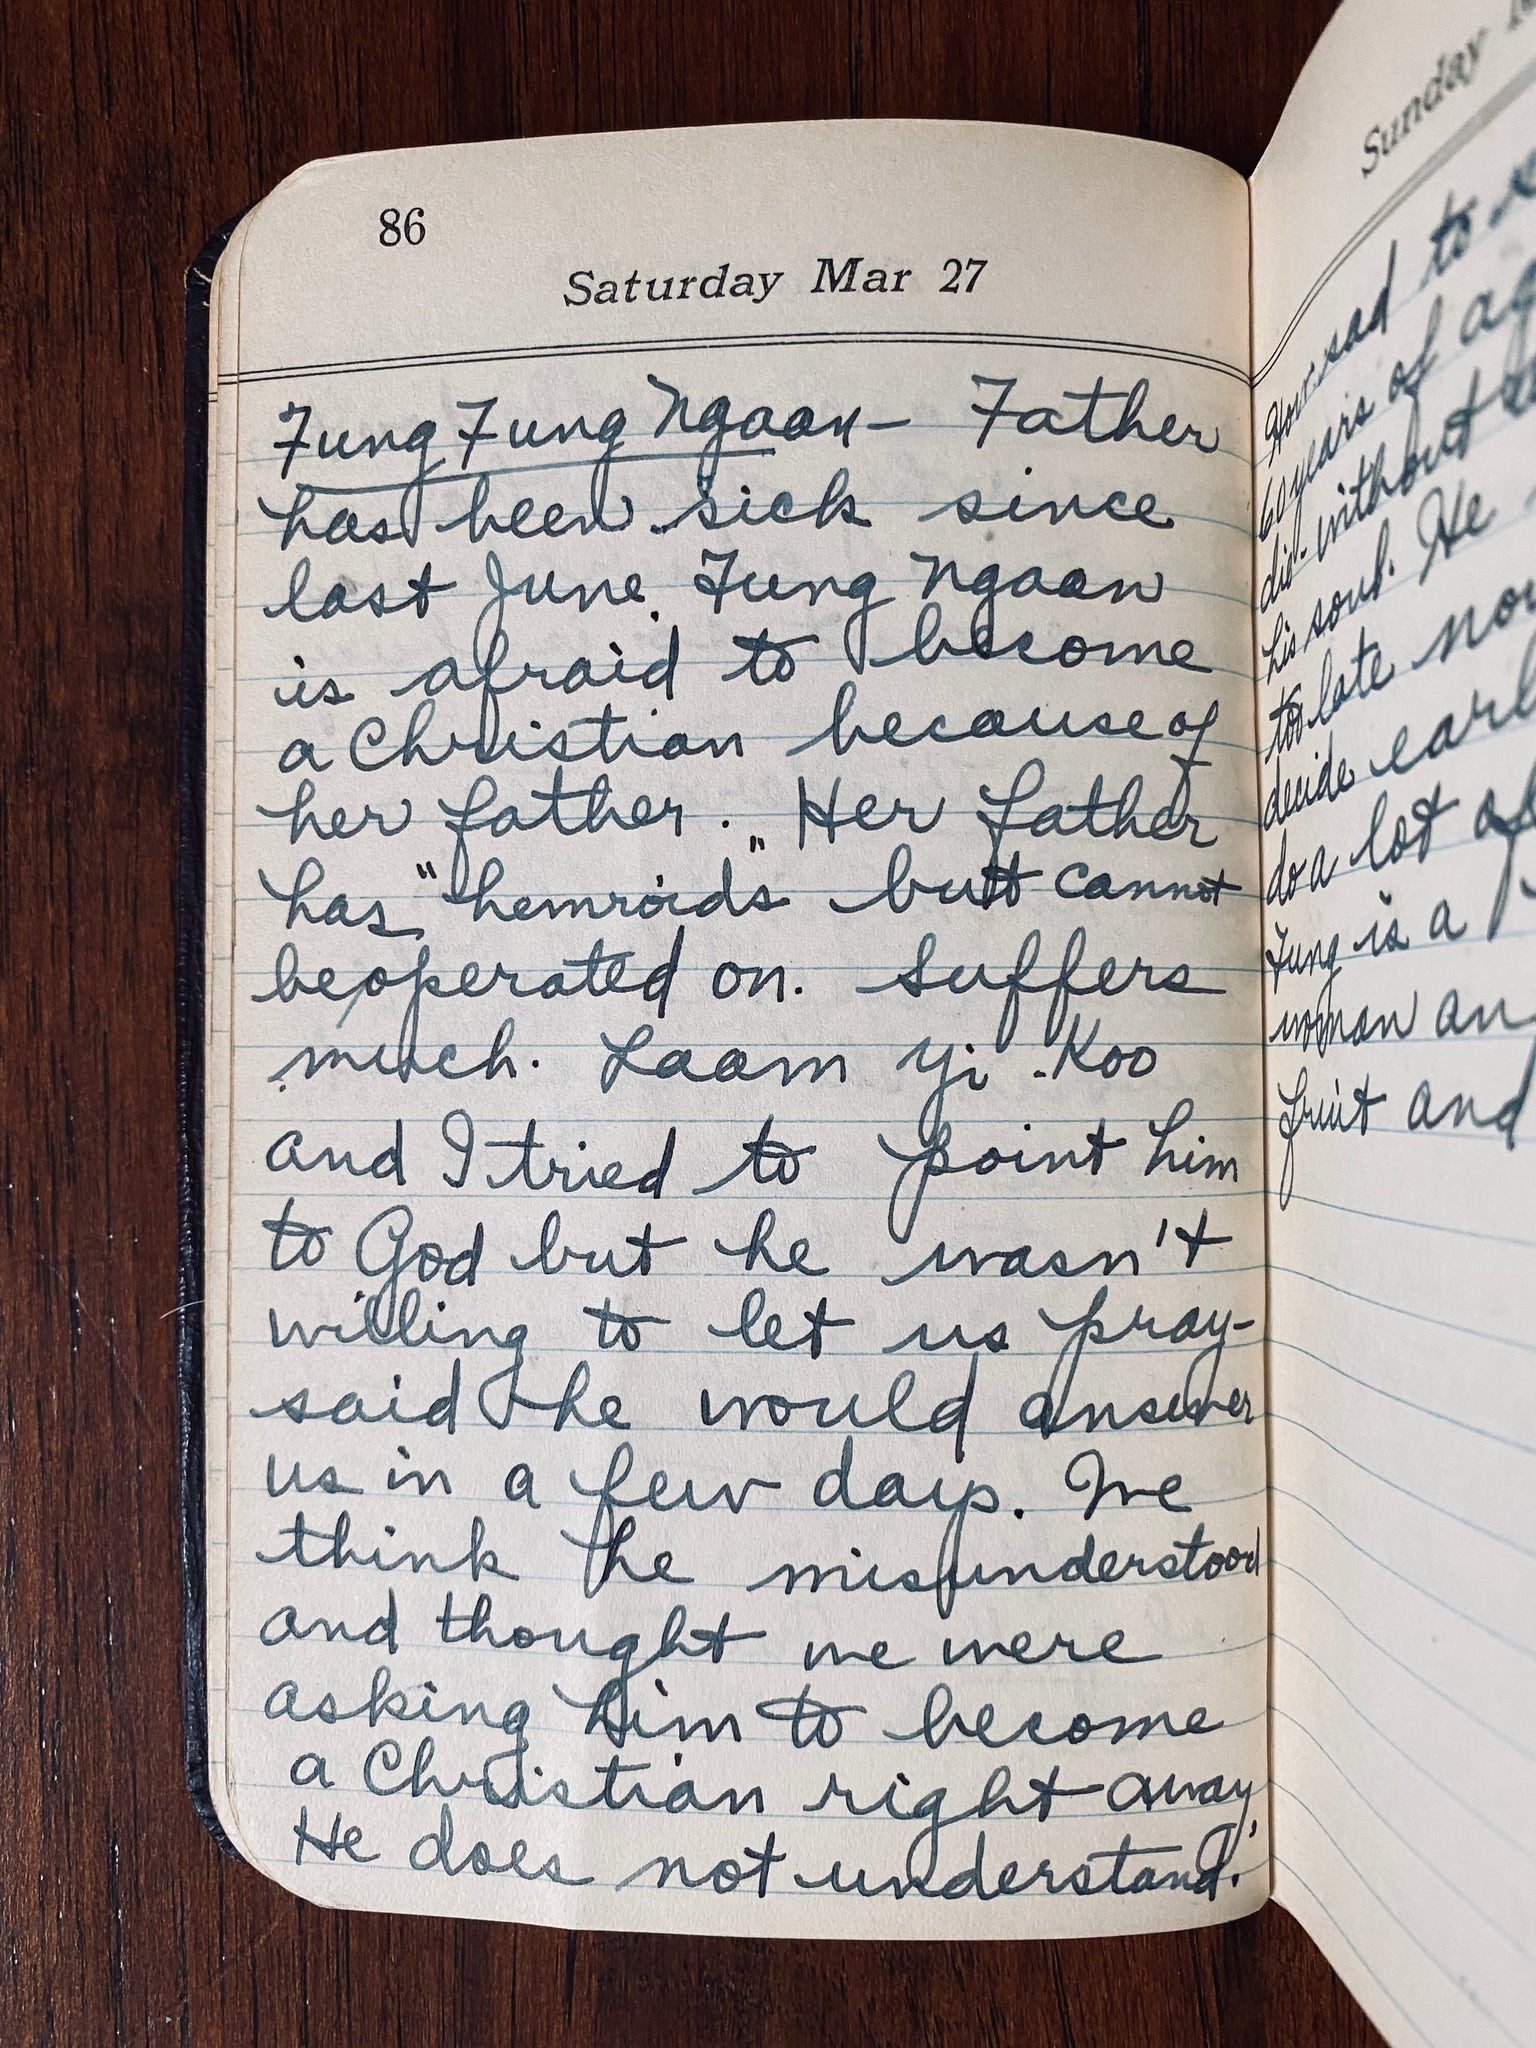 86
Saturday Mar 27
Fung Fung Ngaan - Father
has been sick since
last June. Fung Ngaan
is afraid to become
a Christian because of
her father. Her father
has "hemroids" but cannot
be operated on. Suffers
much. Laam Yi Koo
and I tried to point him
to God but he wasn't
willing to let us pray -
said he would answer
us in a few days. We
think he misunderstood
and thought we were
asking him to become
a Christian right away.
He does not understand.
Sunday
How sad to
60 years of
die without
his soul. He
too late
decide
do a lot of
Fung is a
woman
fruit and